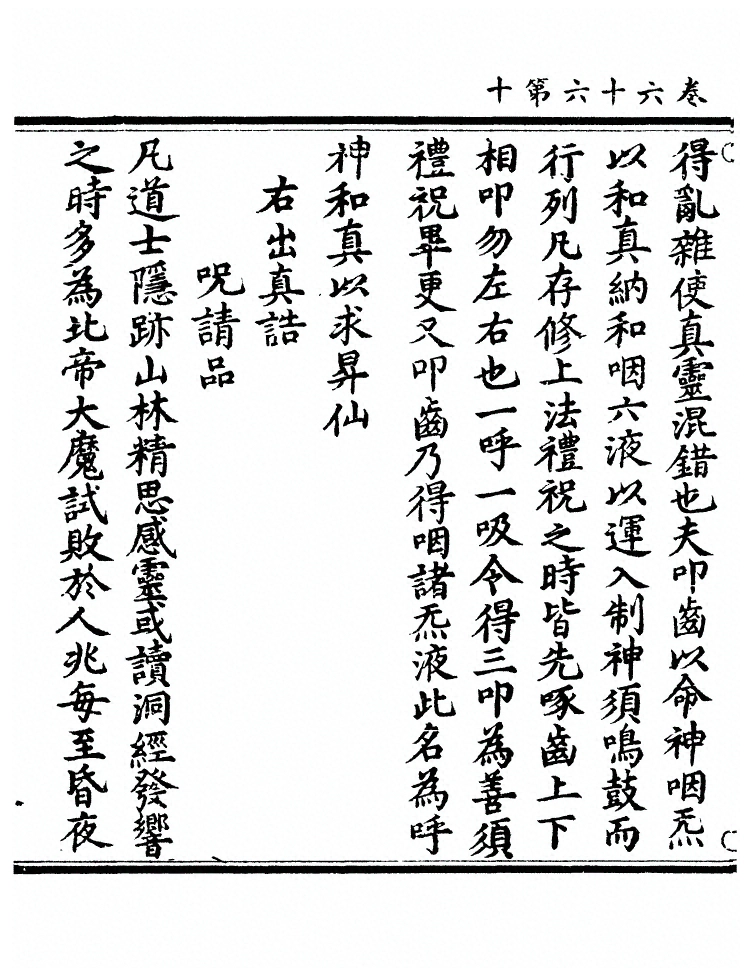 卷六十六第十
得亂雜使真靈混錯也夫叩齒以命神咽炁
以和真納和咽六液以運入制神須鳴鼓而
行列凡存修上法禮祝之時皆先啄齒上下
相叩勿左右也一呼一吸令得三叩為善須
禮祝畢更又叩齒乃得咽諸炁液此名為呼
神和真以求昇仙
右出真誥
呪請品
凡道士隱跡山林精思感靈或讀洞經發響
之時多為北帝大魔試敗於人兆每至昏夜